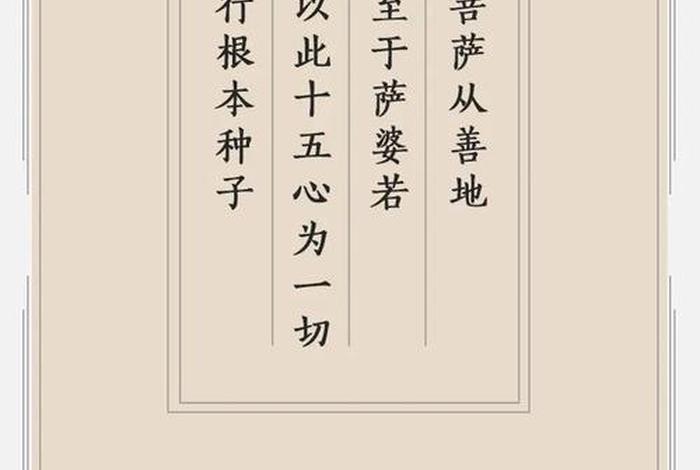 菩萨从善地
至于萨婆若
以此十五心为一切
行根本种子